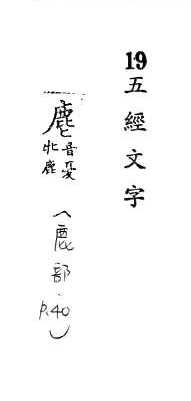 19
五經文字
麀音憂
牝鹿
（鹿部.P.40）